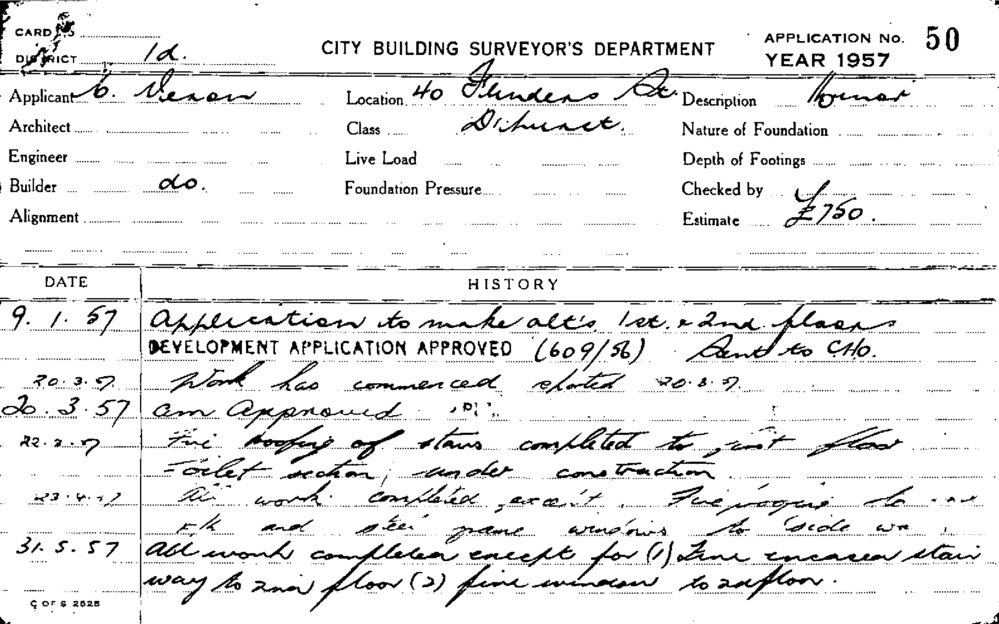 CARD
DISTRICT 1d.
CITY BUILDING SURVEYOR'S DEPARTMENT
APPLICATION No. 50
YEAR 1957
Applicant C. Vernon Location 40 Flinders St. Description
Architect Class D'hurst. Nature of Foundation
Engineer Live Load Depth of Footings
Builder do. Foundation Pressure Checked by
Alignment Estimate £750.
DATE HISTORY
9. 1. 57 Application to make alt's 1st. & 2nd. floors
DEVELOPMENT APPLICATION APPROVED (609/56) Sent to CHO.
20.3.57 Work has commenced 20.3.57
20.3.57 Approved
22. .57 Fire of stairs completed to first floor
Toilet section, under construction
23.4.57 All work completed except Fire to
and steel frame windows to side
31.5.57 All work completed except for (1) Fire encased stair
way to 2nd floor (2) fire window to 2nd floor.
C OF S 2625